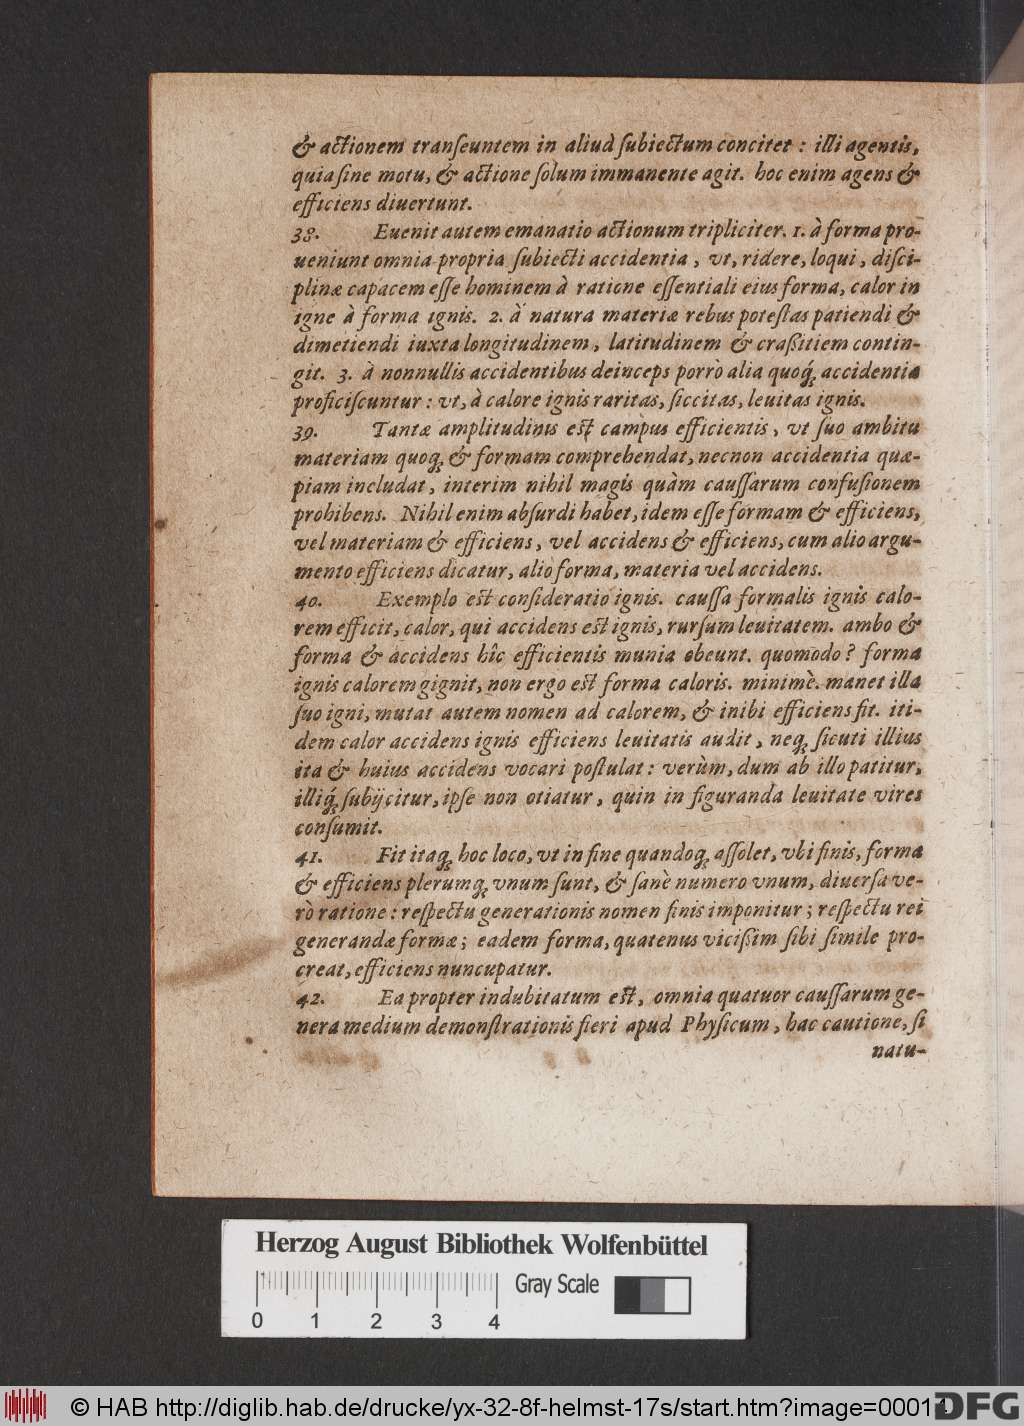 & actionem tranſeuntem in aliud ſubiectum concitet : illi agentis,
quia ſine motu, & actione ſolum immanente agit. hoc enim agens &
efficiens diuertunt.
38. Euenit autem emanatio actionum tripliciter. 1. à forma pro-
ueniunt omnia propria ſubiecti accidentia, vt, ridere, loqui, diſci-
plinæ capacem eſſe hominem à ratione eſſentiali eius forma, calor in
igne à forma ignis. 2. à natura materiæ rebus poteſtas patiendi &
dimetiendi iuxta longitudinem, latitudinem & craßitiem contin-
git. 3. à nonnullis accidentibus deinceps porrò alia quoq́ꝫ accidentia
proficiſcuntur : vt, à calore ignis raritas, ſiccitas, leuitas ignis.
39. Tantæ amplitudinis eſt campus efficientis, vt ſuo ambitu
materiam quoqꝫ & formam comprehendat, necnon accidentia quæ-
piam includat, interim nihil magis quàm cauſſarum confuſionem
prohibens. Nihil enim abſurdi habet, idem eſſe formam & efficiens,
vel materiam & efficiens, vel accidens & efficiens, cum alio argu-
mento efficiens dicatur, alio forma, materia vel accidens.
40. Exemplo eſt conſideratio ignis. cauſſa formalis ignis calo-
rem efficit, calor, qui accidens eſt ignis, rurſum leuitatem. ambo &
forma & accidens hîc efficientis munia obeunt. quomodo? forma
ignis calorem gignit, non ergo eſt forma caloris. minimè. manet illa
ſuo igni, mutat autem nomen ad calorem, & inibi efficiens fit. iti-
dem calor accidens ignis efficiens leuitatis audit, neqꝫ ſicuti illius
ita & huius accidens vocari poſtulat : verùm, dum ab illo patitur,
illiq́ꝫ ſubijcitur, ipſe non otiatur, quin in figuranda leuitate vires
conſumit.
41. Fit itaqꝫ hoc loco, vt in fine quandoqꝫ aſſolet, vbi finis, forma
& efficiens plerumqꝫ vnum ſunt, & ſanè numero vnum, diuerſa ve-
rò ratione : reſpectu generationis nomen finis imponitur; reſpectu rei
generandæ formæ; eadem forma, quatenus viciſsim ſibi ſimile pro-
creat, efficiens nuncupatur.
42. Ea propter indubitatum eſt, omnia quatuor cauſſarum ge-
nera medium demonſtrationis fieri apud Phyſicum, hac cautione, ſi
natu-
Herzog August Bibliothek Wolfenbüttel
Gray Scale
0 1 2 3 4
© HAB http://diglib.hab.de/drucke/yx-32-8f-helmst-17s/start.htm?image=00014
DFG